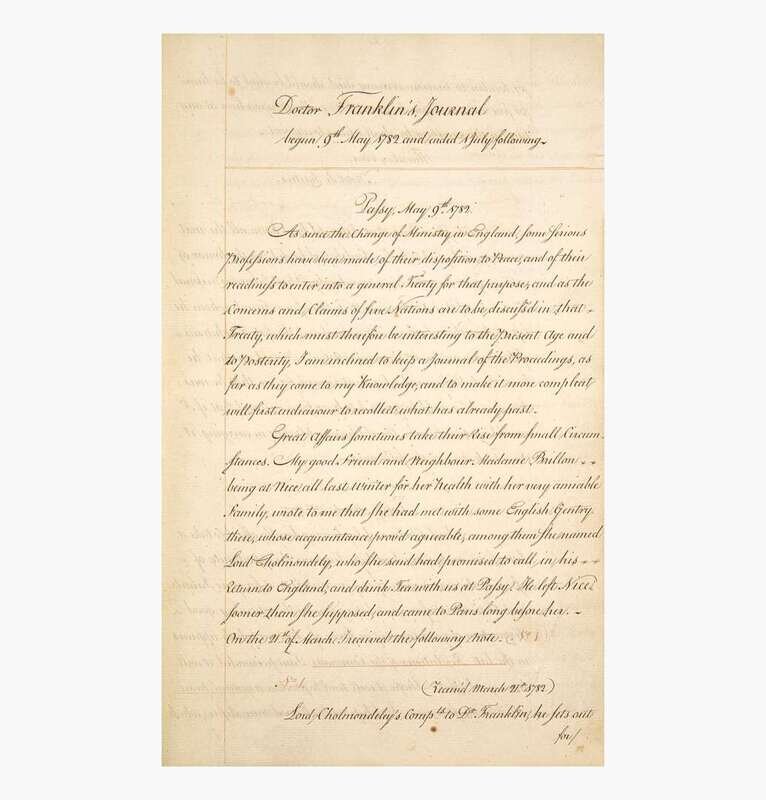 Doctor Franklin's Journal
begun 9th May 1782 and ended 1 July following.
Passy, May 9th 1782.
As since the Change of Ministry in England, some serious
Professions have been made of their disposition to Peace, and of their
readiness to enter into a general Treaty for that purpose, and as the
Concerns and Claims of five Nations are to be discuss'd in that
Treaty, which must therefore be interesting to the Present Age and
to Posterity, I am inclined to keep a Journal of the Proceedings, as
far as they come to my Knowledge, and to make it more compleat
will first endeavour to recollect what has already past.
Great Affairs sometimes take their Rise from small Circum-
stances. My good Friend and Neighbour Madame Brillon
being at Nice all last Winter for her Health with her very amiable
Family, wrote to me that she had met with some English Gentry
there, whose acquaintance prov'd agreeable, among them she named
Lord Cholmondely, who she said had promised to call in his
Return to England, and drink Tea with us at Passy. He left Nice
sooner than she supposed, and came to Paris long before her.
On the 21st of March I received the following Note.
No. 1.
(Receiv'd March 21st 1782)
Lord Cholmondeley's Compts to Dr. Franklin, he sets out
for/